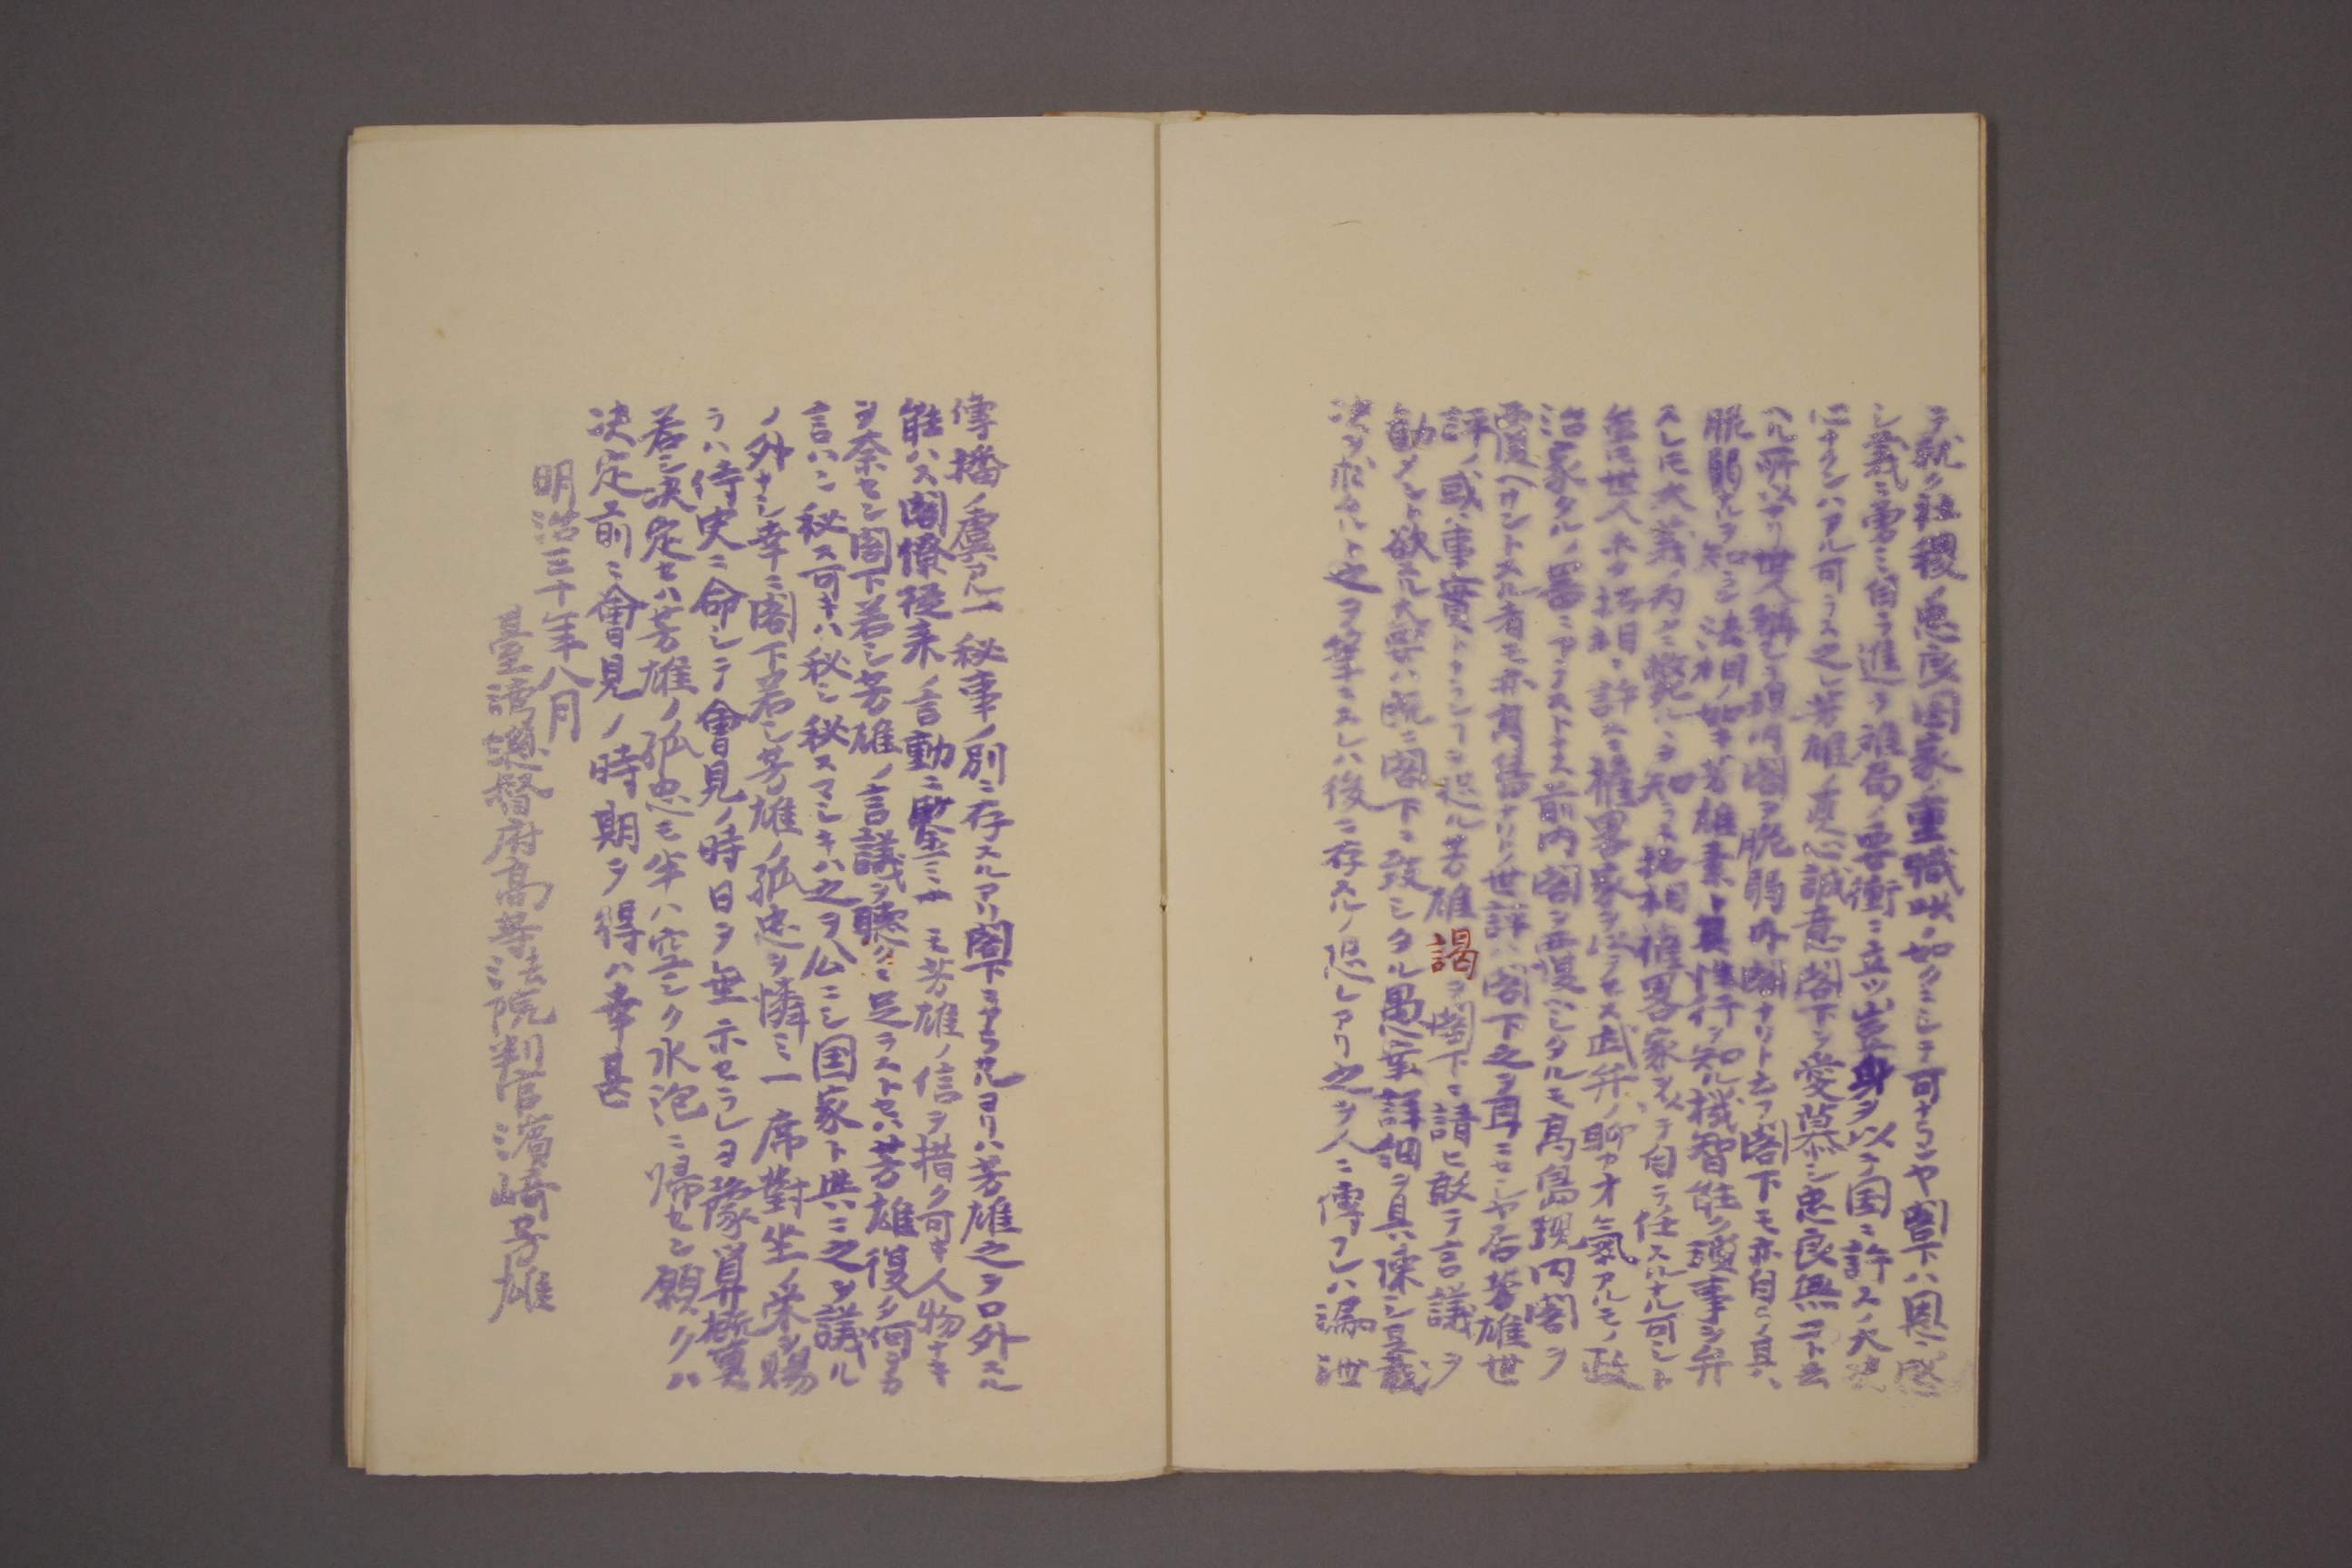 テ就ク社稷ノ患国家ノ重職此ノ如クニシテ可ナランヤ閣下ハ恩ニ感
シ義ニ勇ミ自ラ進テ難局ノ要衝ニ立ツ豈身ヲ以テ国ニ許スノ大決
心ナクンハアル可ラス之レ芳雄ノ真心誠意閣下ヲ愛慕シ忠良無二ト云
ヘル所以ナリ世人称シテ現内閣ヲ脆弱内閣ナリト云フ閣下モ亦自ラノ真ニ
脆弱ナルヲ知ラン法相ノ如キ芳雄素ト其性行ヲ知ル機智能ク事ヲ弁
スレトモ大義ノ為メニ斃ルヽヲ知ラス拓相権略家ヲ以テ自ラ任スルナル可シト
雖トモ世人未タ拓相ニ許スニ権略家ヲ以テセス武弁ノ聊カ才気アルモノ政
治家タルノ器ニアラストナス前内閣ヲ覆シタルモ高島現内閣ヲ
覆ヘサントスル者モ亦高島ナリノ世評ハ閣下之ヲ耳ニセシヤ否芳雄世
評ノ或ハ事実トナランコヲ恐ル芳雄謁ヲ閣下ニ請ヒ敢テ言議ヲ
勧メント欲スル大要ハ既ニ閣下ニ致シタル愚案詳細ヲ具陳シ豆義
決ヲ求ムルト之ヲ筆ニスレハ後ニ存スルノ恐レアリ之ヲ人ニ傳フレハ漏泄
傳播ノ虞アル一秘事ノ別ニ存スルアリ閣下ニアラサルヨリハ芳雄之ヲ口外スル
能ハス閣僚従来ノ言動ニ鑒ミ一モ芳雄ノ信ヲ措ク可キ人物ナキ
ヲ奈セン閣下若シ芳雄ノ言議ヲ聴クニ足ラストセハ芳雄復タ何ヲカ
言ハン秘ス可キハ秘シ秘スマシキハ之ヲ公ニシ国家ト与ニ之ヲ議ル
ノ外ナシ幸ニ閣下若シ芳雄ノ孤忠ヲ憐ミ一席對坐ノ栄ヲ賜
ラハ侍史ニ命シテ會見ノ時日ヲ垂示セラレヨ豫算概算
若シ決定セハ芳雄ノ孤忠モ半ハ空シク水泡ニ帰セン願クハ
決定前ニ會見ノ時期ヲ得ハ幸甚
明治三十年八月
臺湾総督府高等法院判官濱﨑芳雄